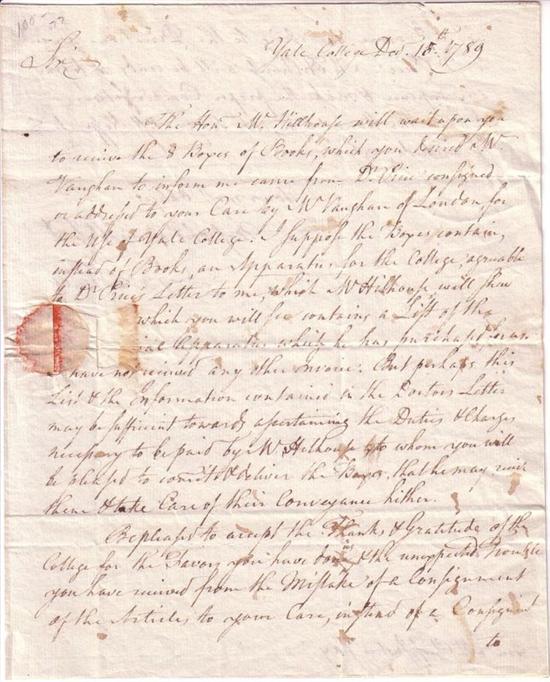 Yale College Dec. 15th 1789
Sir
The Hon. Mr. Hillhouse will wait upon you
to receive the 8 Boxes of Books, which you desired Mr
Vaughan to inform me came from Dr. Price consigned
or addressed to your Care by Mr Vaughan of London for
the Use of Yale College. I suppose the Boxes contain,
instead of Books, an Apparatus for the College, agreable
to Dr. Price's Letter to me, which Mr Hilhouse will shew
which you will see contains a List of the
Apparatus which he has purchased
have not received any other Invoice. But perhaps this
List & the Information contained in the Doctors Letter
may be sufficient towards ascertaining the Duties & Charges
necessary to be paid by Mr Hilhouse to whom you will
be pleased to deliver the Boxes, that he may receive
them & take Care of their Conveyance hither.
Be pleased to accept the Thanks & Gratitude of the
College for the Favors you have done & the unexpected Trouble
you have received from the Mistake of a Consignment
of the Articles to your Care, instead of a Consignmt
to